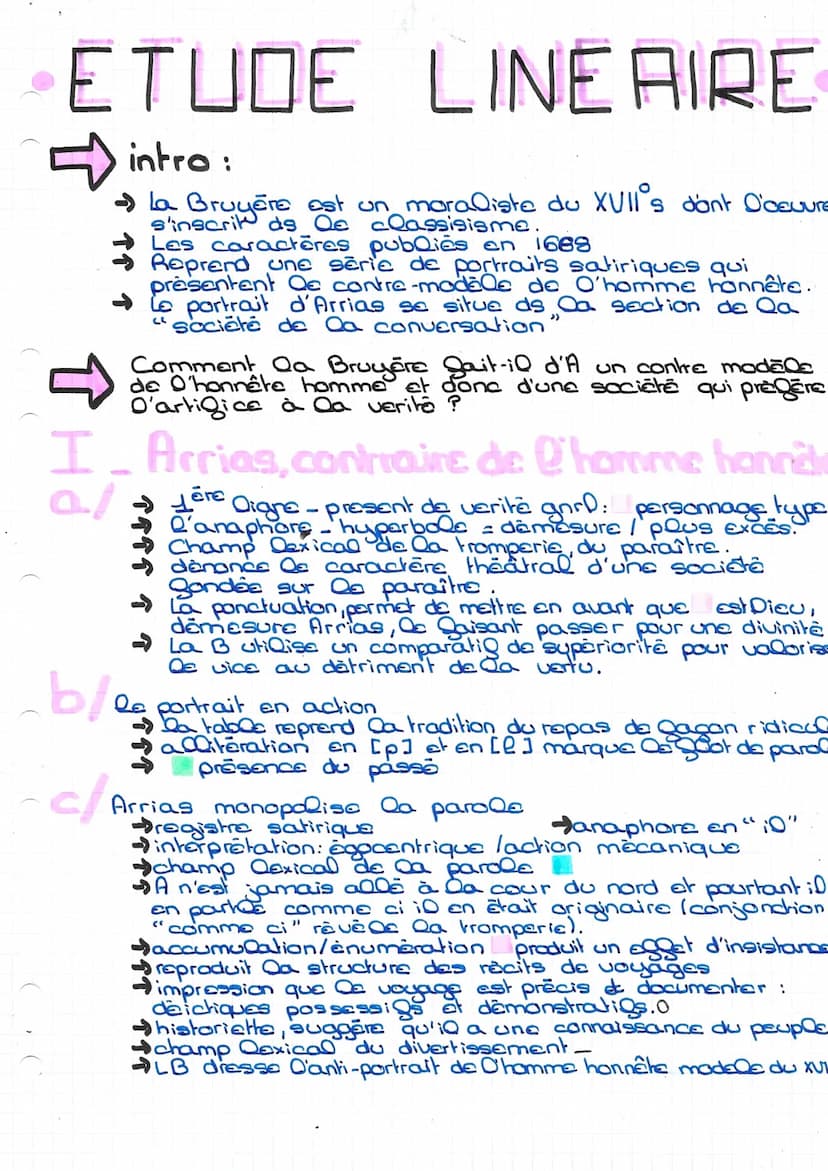 • ETUDE LINEAIRE •
intro :
→ la Bruyère est un moraliste du XVII°s dont l'oeuvre
s'inscrit ds le classisisme.
→ Les caractères publiés en 1688
→ Reprend une série de portraits satiriques qui
présentent le contre-modèle de l'homme honnête.
→ le portrait d'Arrias se situe ds la section de la
"société de la conversation"
Comment la Bruyère fait-il d'A un contre modèle
de l'honnête homme et donc d'une société qui préfère
l'artifice à la verité ?
I - Arrias, contraire de l'homme honnête
a/ → 1ère ligne - present de verité gnrl : personnage type
→ l'anaphore - hyperbole = démesure / plus excès.
→ Champ lexical de la tromperie, du paraître.
→ dénonce le caractère théâtral d'une société
fondée sur le paraître.
→ La ponctuation, permet de mettre en avant que est Dieu,
démesure Arrias, le faisant passer pour une divinité
→ La B utilise un comparatif de supériorité pour valorise
le vice au détriment de la vertu.
b/ le portrait en action
→ la table reprend la tradition du repas de façon ridicul
→ allitération en [p] et en [l] marque le flot de parol
→ présence du passé
c/ Arrias monopolise la parole
→ registre satirique → anaphore en "il"
→ interprétation: égocentrique / action mécanique
→ champ lexical de la parole
→ A n'est jamais allé à la cour du nord et pourtant il
en parle comme ci il en était originaire (conjonction
"comme ci" révèle la tromperie).
→ accumulation/énumération produit un effet d'insistance
→ reproduit la structure des récits de voyages
→ impression que le voyage est précis & documenter :
déictiques possessifs et démonstratifs.
→ historiette, suggère qu'il a une connaissance du peuple
→ champ lexical du divertissement _
→ LB dresse l'anti-portrait de l'homme honnête modele du XVI